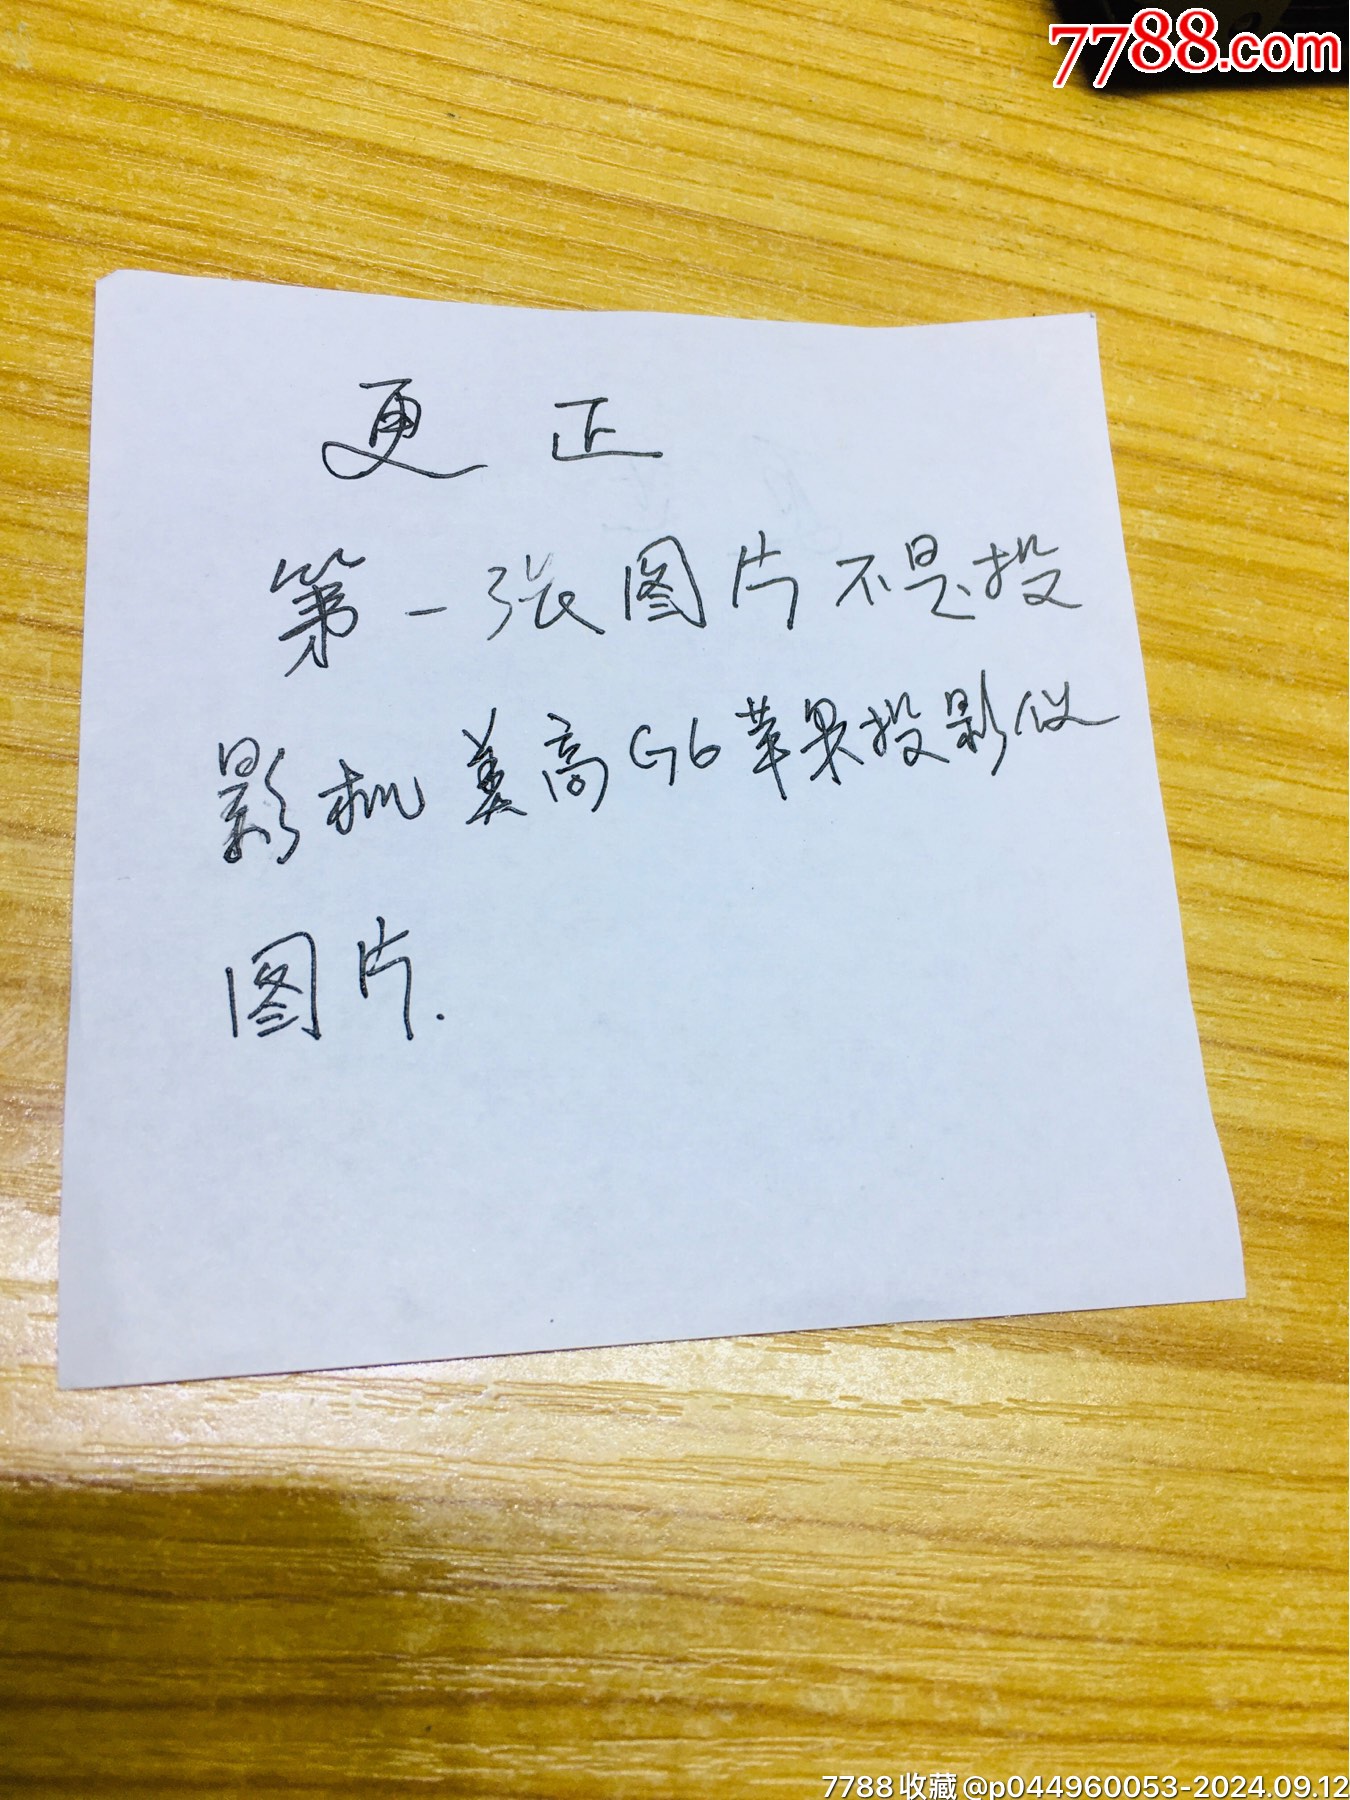 7788.com
更正
第一张图片不是投
影机美高G6苹果投影仪
图片.
7788收藏@p044960053-2024.09.12